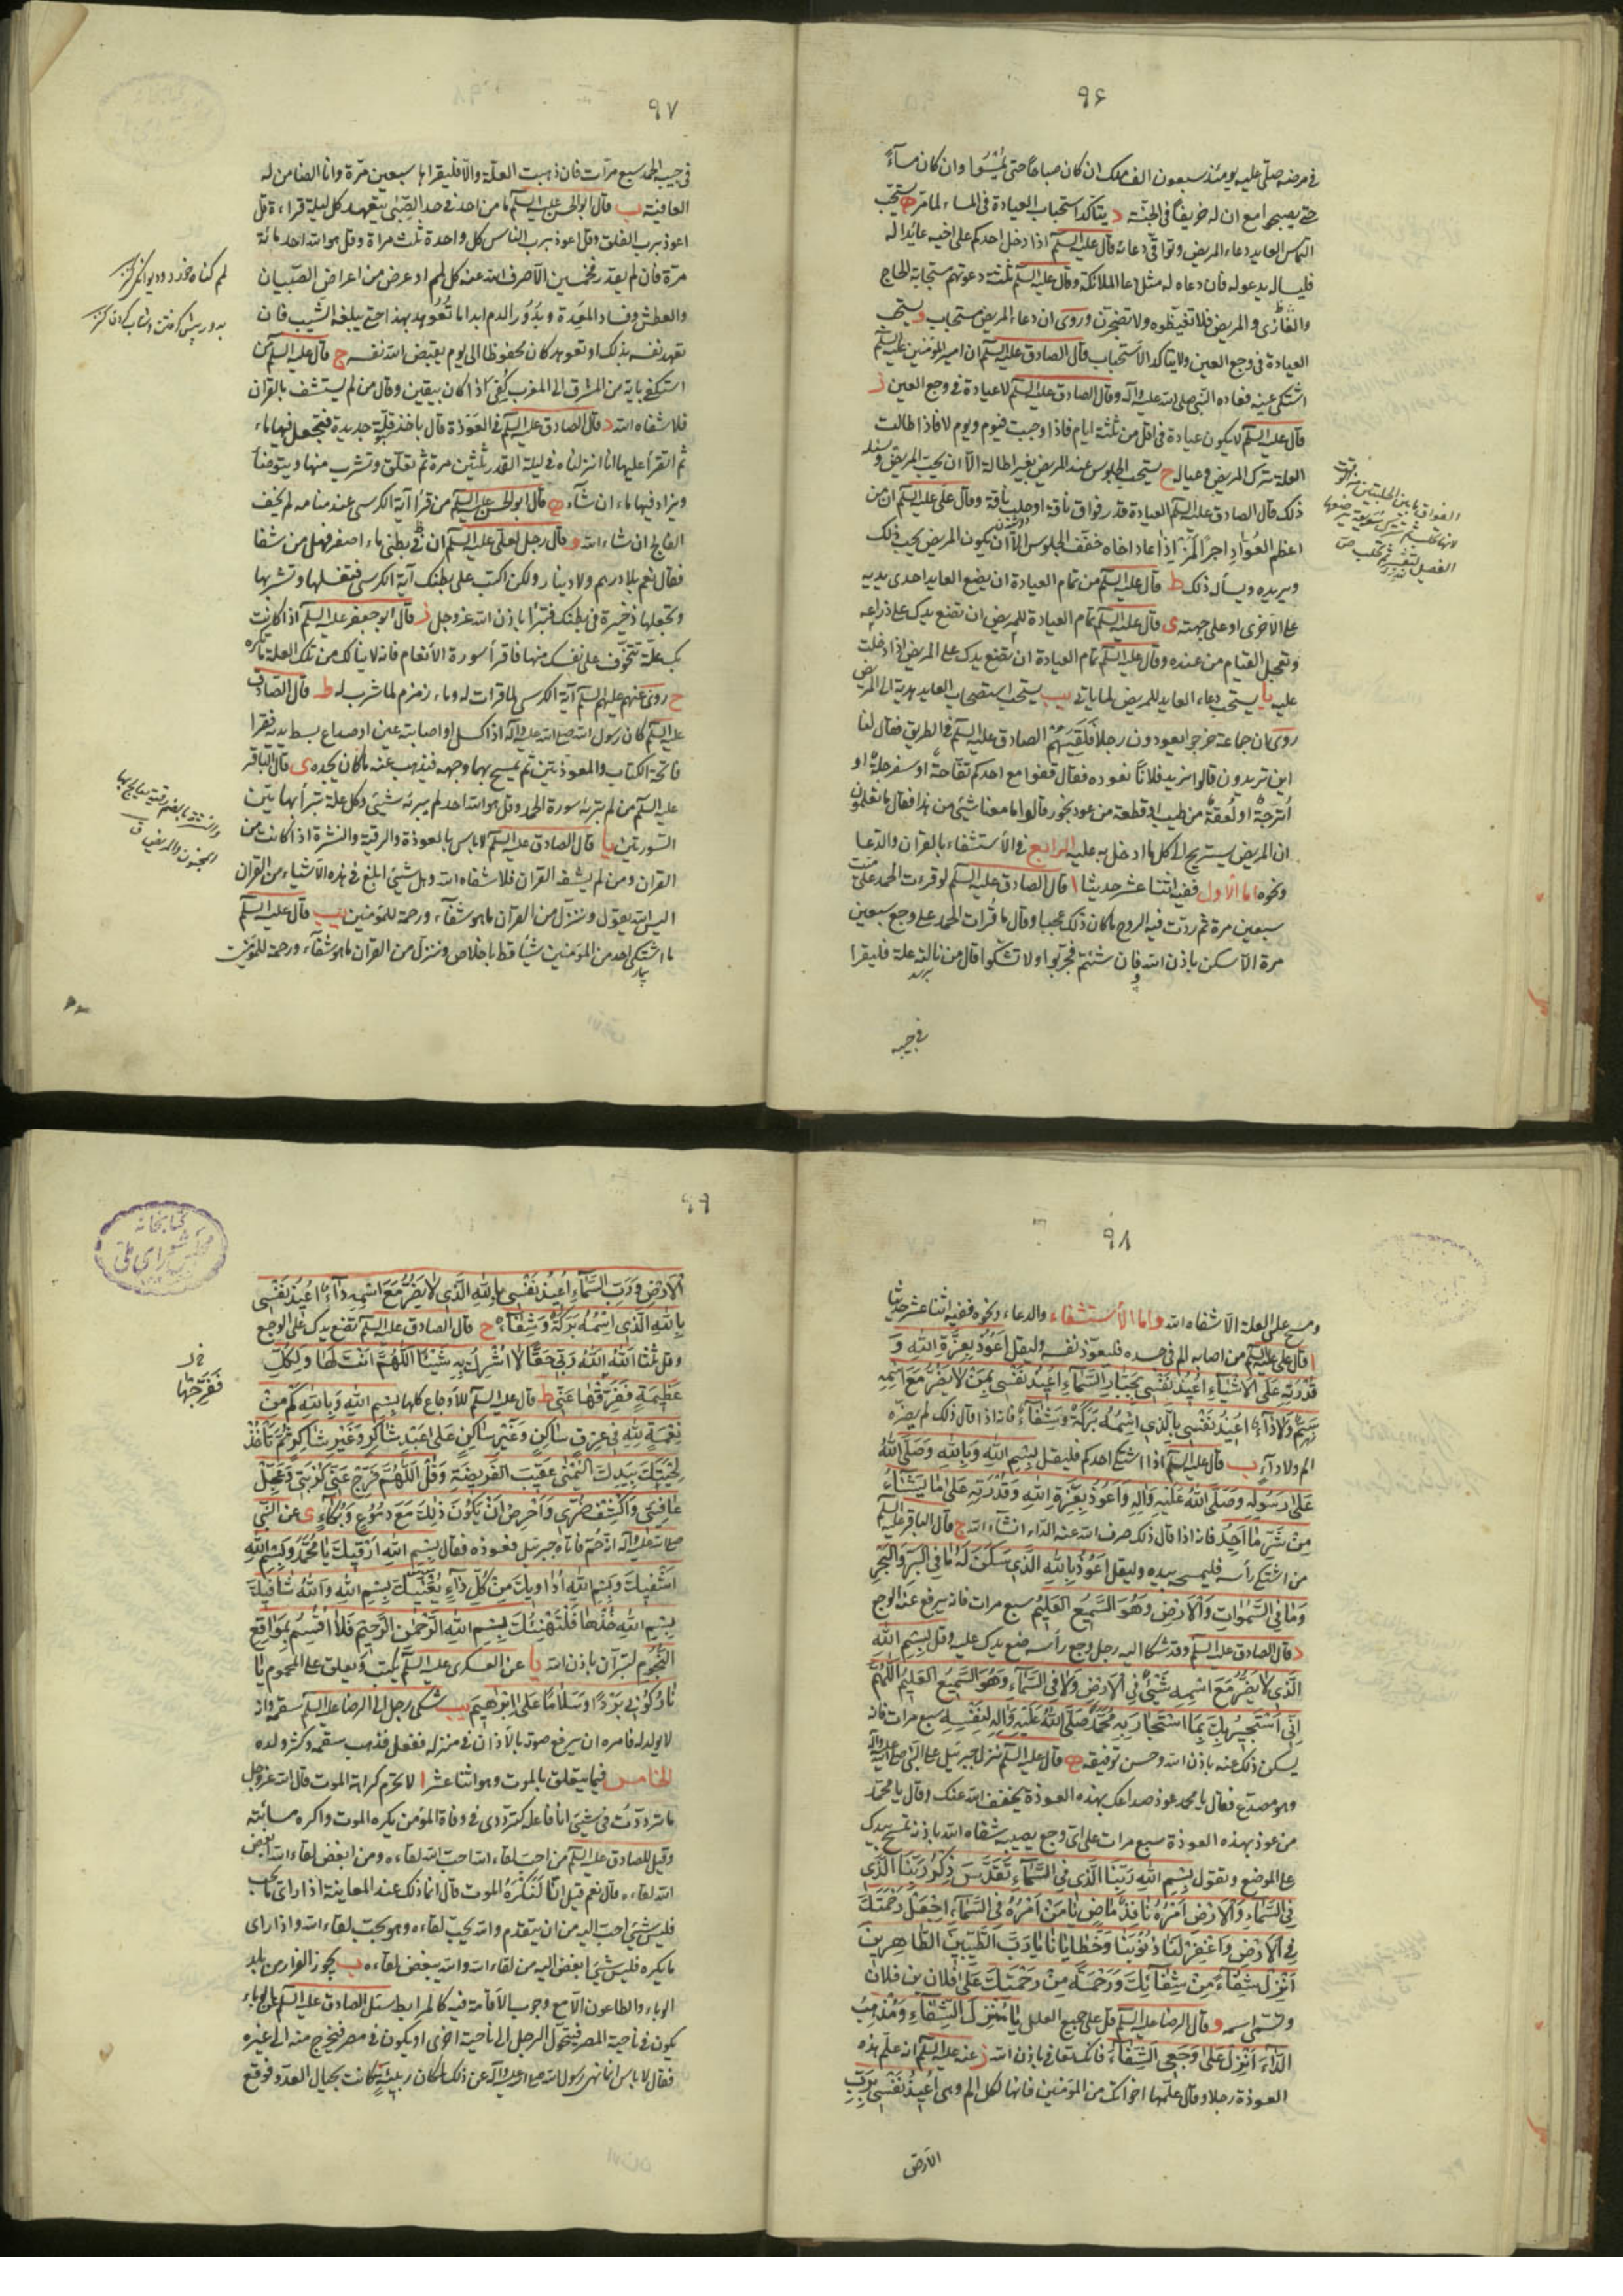 ٩۶
في مرضه صلّى عليه يومئذ سبعون الف ملك ان كان صباحًا حتى يُمْسُوا وان كان مساءً
حتى يصبحوا مع ان له خريفًا في الجنّة د يتأكد استحباب العيادة في المساء لما مرّ ه يستحب
التماس العايد دعاء المريض وتوقّى دعائه قال عليه السلم اذا دخل احدكم على اخيه عائدا له
فليساله يدعو له فان دعاءه له مثل دعاء الملائكة وقال عليه السلم ثلثة دعوتهم مستجابة الحاج
والغازى والمريض فلا تغيظوه ولا تضجروه وروى ان دعاء المريض مستجاب و يستحب
العيادة في وجع العين ولا يتاكد الاستحباب قال الصادق عليه السلم ان امير المؤمنين عليه السلم
اشتكى عينه فعاده النبي صلى الله عليه واله وقال الصادق عليه السلم لا عيادة في وجع العين ز
قال عليه السلم لا يكون عيادة في اقل من ثلثة ايام فاذا وجبت فيوم ويوم لا فاذا طالت
العلة ترك المريض وعياله ح يستحب الجلوس عند المريض بغير اطالة الا ان يحب المريض ويسئله
ذلك قال الصادق عليه السلم العيادة قدر فواق ناقة او حلب ناقة وقال علي عليه السلم ان من
اعظم العُوّادِ اجرًا لَمَنْ اذا عاد اخاه خفّف الجلوس الا ان يكون المريض يحب ذلك
ويريده ويساله ذلك ط قال عليه السلم من تمام العيادة ان يضع العايد احدى يديه
على الاخرى او على جبهته ى قال عليه السلم تمام العيادة للمريض ان تضع يدك على ذراعه
وتعجل القيام من عنده وقال عليه السلم تمام العيادة ان تضع يدك على المريض اذا دخلت
عليه يا يستحب دعاء العايد للمريض لما ياتى يب يستحب استصحاب العايد هدية الى المريض
روى ان جماعة خرجوا يعودون رجلا فلقيهم الصادق عليه السلم في الطريق فقال لنا
اين تريدون قالوا نريد فلانًا نعوده فقال قفوا مع احدكم تفّاحة او سفرجلة او
اُترجة او لُعقة من طيب او قطعة من عود بخور قالوا ما معنا شيء من هذا فقال ما تعلمون
ان المريض يستريح الى كل ما ادخل به عليه الرابع في الاستشفاء بالقران والدعا
ونحوه اما الأول ففيه اثنتا عشر حديثا ا قال الصادق عليه السلم لو قرءت الحمد على ميت
سبعين مرة ثم ردّت فيه الروح ما كان ذلك عجبا وقال ما قرات الحمد على وجع سبعين
مرة الا سكن باذن الله وان شئتم فجربوا ولا تشكوا قال من نالته علة فليقرا
في جيبه
٩٧
في جيبه الحمد سبع مرّات فان ذهبت العلّة والّا فليقراها سبعين مرّة وانا الضامن له
العافية ب قال ابو الحسن عليه السلم ما من احد في حد الصِّبَى يتعهد كل ليلة قراءة قل
اعوذ برب الفلق وقل اعوذ برب الناس كل واحدة ثلث مراة وقل هو الله احد مائة
مرّة فان لم يقدر فخمسين الّا صرف الله عنه كل لمم او عرض من اعراض الصّبيان
والعطش وفساد المعِدة وبُدُور الدم ابدا ما تُعُوهِد بهذا حتى يبلغه الشيب فان
تعهد نفسه بذلك او تعوهد كان محفوظا الى يوم يقبض الله نفسه ج قال عليه السلم من
استكفى باية من المشرق الى المغرب كُفِىَ اذا كان بيقين وقال من لم يستشف بالقران
فلا شفاه الله د قال الصادق عليه السلم في العَوذة قال ياخذ قلة جديدة فتجعل فيها ماء
ثم اتقرأ عليها انا انزلناه في ليلة القدر ثلثين مرة ثم تعلّق وتشرب منها ويتوضأ
ويزاد فيها ماء ان شآء ه قال ابو الحسن عليه السلم من قرأ آية الكرسى عند منامه لم يخف
الفالج ان شاء الله و قال رجل لعلى عليه السلم ان في بطنى ماء اصفر فهل من شفا
فقال نعم بلا درهم ولا دينار ولكن اكتب على بطنك آية الكرسى فتغسلها وتشربها
وتجعلها ذخيرة في بطنك فتبرأ باذن الله عز وجل ز قال ابو جعفر عليه السلم اذا كانت
بك علّة تتخوّف على نفسك منها فاقرأ سورة الأنعام فانه لا ينالك من تلك العلة ما تكره
ح روى عنهم عليهم السلم آية الكرسى لما قرات له وماء زمزم لما شرب له ط قال الصادق
عليه السلم كان رسول الله صلى الله عليه واله اذا كسل او اصابته عين او صداع بسط يديه فقرا
فاتحة الكتاب والمعوذتين ثم يمسح بهما وجهه فيذهب عنه ما كان يجده ى قال الباقر
عليه السلم من لم يُبرئه سورة الحمد وقل هو الله احد لم يبرئه شيئ وكل علة تبرأ بهاتين
السّورتين يا قال الصادق عليه السلم لا باس بالعوذة والرقية والنشرة اذا كانت من
القران ومن لم يشفه القران فلا شفاه الله وهل شيئ ابلغ في هذه الأشياء من القران
اليس الله يقول وننزّل من القران ما هو شفآء ورحمة للمؤمنين يب قال عليه السلم
ما اشتكى احد من المؤمنين شيئا قط باخلاص وننزل من القران ما هو شفآء ورحمة للمؤمنين
٩٨
ومسح على العلة الّا شفاه الله واما الأستشفاء والدعاء ونحوه ففيه اثنا عشر حديثا
ا قال علي عليه السلم من اصابه الم في جسده فليعوّذ نفسه وليقل اَعُوذُ بِعِزَّةِ اللهِ وَ
قُدْرَتِهِ عَلَى الْاَشْيَاءِ اُعِيذُ نَفْسِي بِجَبَّارِ السَّمَآءِ اُعِيذُ نَفْسِي بِمَنْ لَا يَضُرُّ مَعَ اسْمِهِ
سَمٌّ وَلَا دَآءٌ اُعِيذُ نَفْسِي بِالَّذِي اسْمُهُ بَرَكَةٌ وَشِفَآءٌ فانه اذا قال ذلك لم يضرّه
الم ولا دآء ب قال عليه السلم اذا اشتكى احدكم فليقل بِسْمِ اللهِ وَبِاللهِ وَصَلَّى اللهُ
عَلَى رَسُولِهِ وَصَلَّى اللهُ عَلَيْهِ وَالِهِ وَاَعُوذُ بِعِزَّةِ اللهِ وَقُدْرَتِهِ عَلَى مَا يَشَاءُ
مِنْ شَرِّ مَا اَجِدُ فانه اذا قال ذلك صرف الله عنه الداء انشآء الله ج قال الباقر عليه السلم
من اشتكى رأسه فليمسحه بيده وليقل اَعُوذُ بِاللهِ الَّذِي سَكَنَ لَهُ مَا فِي الْبَرِّ وَالْبَحْرِ
وَمَا فِي السَّمٰوَاتِ وَالْاَرْضِ وَهُوَ السَّمِيعُ الْعَلِيمُ سبع مرات فانه يرفع عنه الوجع
د قال الصادق عليه السلم وقد شكا اليه رجل وجع رأسه ضع يدك عليه وقل بِسْمِ اللهِ
الَّذِي لَا يَضُرُّ مَعَ اسْمِهِ شَيْئٌ فِي الْاَرْضِ وَلَا فِي السَّمَآءِ وَهُوَ السَّمِيعُ الْعَلِيمُ اَللّٰهُمَّ
اِنِّي اَسْتَجِيرُ بِكَ بِمَا اسْتَجَارَ بِهِ مُحَمَّدٌ صَلَّى اللهُ عَلَيْهِ وَالِهِ لِنَفْسِهِ سبع مرات فانه
يسكن ذلك عنه باذن الله وحسن توفيقه ه قال عليه السلم نزل جبرئيل على النبي صلى الله عليه واله
وهو مصدّع فقال يا محمد عوذ صداعك بهذه العوذة يخفف الله عنك وقال يا محمّد
من عوذ بهذه العوذة سبع مرات على اى وجع يصيبه شفاه الله باذنه تمسح بيدك
على الموضع وتقول بِسْمِ اللهِ رَبِّنَا الَّذِي فِي السَّمَآءِ تَقَدَّسَ ذِكْرُ رَبِّنَا الَّذِي
فِي السَّمَآءِ وَالْاَرْضِ اَمْرُهُ نَافِذٌ مَاضٍ يَا مَنْ اَمْرُهُ فِي السَّمَآءِ اِجْعَلْ رَحْمَتَكَ
فِي الْاَرْضِ وَاغْفِرْ لَنَا ذُنُوبَنَا وَخَطَايَانَا يَا رَبَّ الطَّيِّبِينَ الطَّاهِرِينَ
اَنْزِلْ شِفَآءً مِنْ شِفَآئِكَ وَرَحْمَةً مِنْ رَحْمَتِكَ عَلَى فُلَانِ بن فلان
وتسمّى اسمه و قال الرضا عليه السلم قل على جميع العلل يَا مُنْزِلَ الشِّفَآءِ وَمُذْهِبَ
الدَّآءِ اَنْزِلْ عَلَى وَجَعِي الشِّفَآءَ فانك تعافى باذن الله ز عنه عليه السلم انه علّم هذه
العوذة رجلا وقال علّمها اخوانك من المؤمنين فانها لكل الم وهى اُعِيذُ نَفْسِي بِرَبِّ
الأرض
٩٩
الْاَرْضِ وَرَبِّ السَّمَآءِ اُعِيذُ نَفْسِي بِاللهِ الَّذِي لَا يَضُرُّ مَعَ اسْمِهِ دَآءٌ اُعِيذُ نَفْسِي
بِاللهِ الَّذِي اسْمُهُ بَرَكَةٌ وَشِفَآءٌ ح قال الصادق عليه السلم تضع يدك على الوجع
وقل ثلثا اَللهُ اَللهُ رَبِّي حَقًّا لَا اُشْرِكُ بِهِ شَيْئًا اَللّٰهُمَّ اَنْتَ لَهَا وَلِكُلِّ
عَظِيمَةٍ فَفَرِّقْهَا عَنِّي ط قال عليه السلم للأوجاع كلها بِسْمِ اللهِ وَبِاللهِ كَمْ مِنْ
نِعْمَةٍ لِلهِ فِي عِرْقٍ سَاكِنٍ وَغَيْرِ سَاكِنٍ عَلَى عَبْدٍ شَاكِرٍ وَغَيْرِ شَاكِرٍ ثُمَّ تَأْخُذُ
لِحْيَتَكَ بِيَدِكَ الْيُمْنَى عَقِيبَ الْفَرِيضَةِ وَقُلْ اَللّٰهُمَّ فَرِّجْ عَنِّي كُرْبَتِي وَعَجِّلْ
عَافِيَتِي وَاكْشِفْ ضُرِّي وَاحْرِصْ اَنْ يَكُونَ ذٰلِكَ مَعَ دُمُوعٍ وَبُكَآءٍ ى عن النبي
صلى الله عليه واله انه حُمّ فاتاه جبرئيل فعوذه فقال بِسْمِ اللهِ اَرْقِيكَ يَا مُحَمَّدُ وَبِسْمِ اللهِ
اَشْفِيكَ وَبِسْمِ اللهِ اُدَاوِيكَ مِنْ كُلِّ دَآءٍ يُعَنِّيكَ بِسْمِ اللهِ وَاللهُ شَافِيكَ
بِسْمِ اللهِ خُذْهَا فَلْتَهْنِئْكَ بِسْمِ اللهِ الرَّحْمٰنِ الرَّحِيمِ فَلَا اُقْسِمُ بِمَوَاقِعِ
النُّجُومِ لتبرأن باذن الله يا عن العسكرى عليه السلم يكتب ويعلق على المحموم يَا
نَارُ كُونِي بَرْدًا وَسَلَامًا عَلَى اِبْرَاهِيمَ يب شكى رجل الى الرضا عليه السلم سقمه وانه
لا يولد له فامره ان يرفع صوته بالأذان في منزله ففعل فذهب سقمه وكثر ولده
الخامس فيما يتعلق بالموت وهو اثنا عشر ا لا يحرم كراهة الموت قال الله عز وجل
ما تردّدت في شيئ انا فاعله كتردّدى في وفاة المؤمن يكره الموت واكره مسائته
وقيل للصادق عليه السلم من احبّ لقاء الله احب الله لقاءه ومن ابغض لقاء الله ابغض
الله لقاءه قال نعم قيل انّا لَنَكْرَهُ الموت قال انما ذلك عند المعاينة اذا راى ما يحب
فليس شيئ احب اليه من ان يتقدم والله يحب لقاءه وهو يحب لقاء الله واذا راى
ما يكره فليس شيئ ابغض اليه من لقاء الله والله يبغض لقاءه ب يجوز الفرار من بلد
الوباء والطاعون الّا مع وجوب الأقامة فيه كالمرابط سئل الصادق عليه السلم عن الوباء
يكون في ناحية المصر فيتحوّل الرجل الى ناحية اخرى او يكون في مصر فيخرج منه الى غيره
فقال لا باس انما نهى رسول الله صلى الله عليه واله عن ذلك لمكان ربيئة كانت بحيال العدو فوقع
كتابخانه
مجلس شوراى ملى